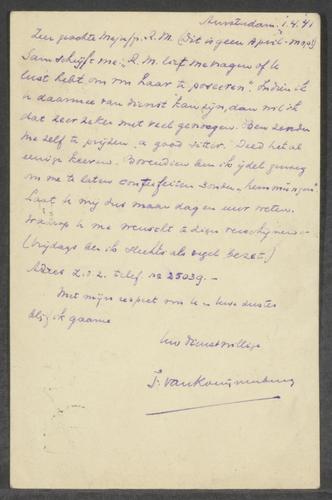 Amsterdam. 1.4.41
Zeer geachte Mejuffr. R.M. (Dit is geen April-mop!)
Sam schrijft me: R.M. laat me vragen of ik
lust heb om om haar te poseeren". Indien ik
U daarmee van dienst kan zijn, dan wil ik
dat zeer zeker met veel genoegen. Ben zonder
me zelf te prijzen "a good sitter". Deed het al
eenige keeren. Bovendien ben ik ijdel genoeg
om me te laten conterfeiten zonder "hemmingen"
Laat U mij dus maar dag en uur weten.
Waarop U me wenscht te zien verschijnen.-
(Vrijdags ben ik slechts als regel bezet.)
Adres z.o.z. telef. no 25039.-
Met mijn respect voor U en Uwe zuster
blijf ik gaarne
Uw dienstwillige
J. van